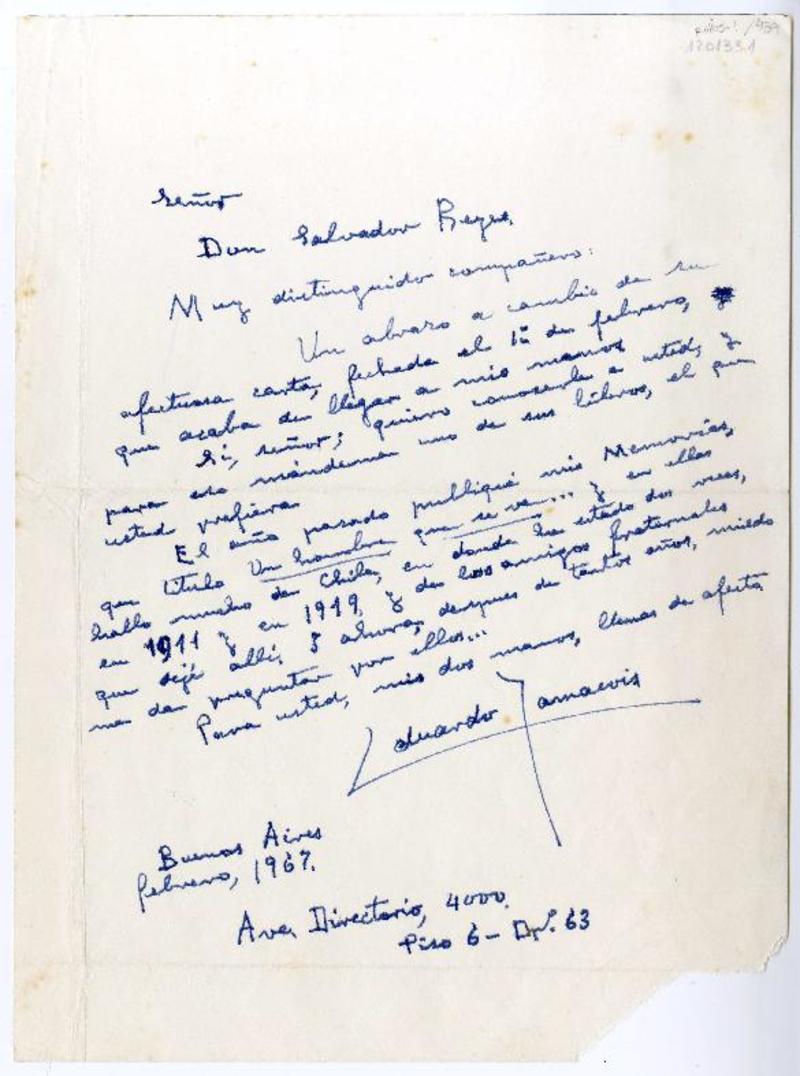 /439
120133.1
Señor
Don Salvador Reyes.
Muy distinguido compañero:
Un abrazo a cambio de su
afectuosa carta, fechada el 1º de febrero, y
que acaba de llegar a mis manos.
Sí, señor; quiero conocerle a usted, y
para eso mándeme uno de sus libros, el que
usted prefiera.
El año pasado publiqué mis Memorias,
que titulo Un hombre que se va... y en ellas
hablo mucho de Chile, en donde he estado dos veces,
en 1911 y en 1919, y de los amigos fraternales
que dejé allí. Y ahora, después de tantos años, miedo
me da preguntar por ellos...
Para usted, mis dos manos, llenas de afecto
Eduardo Zamacois
Buenos Aires
febrero, 1967.
Ave. Directorio, 4000.
Piso 6 - Dpº. 63